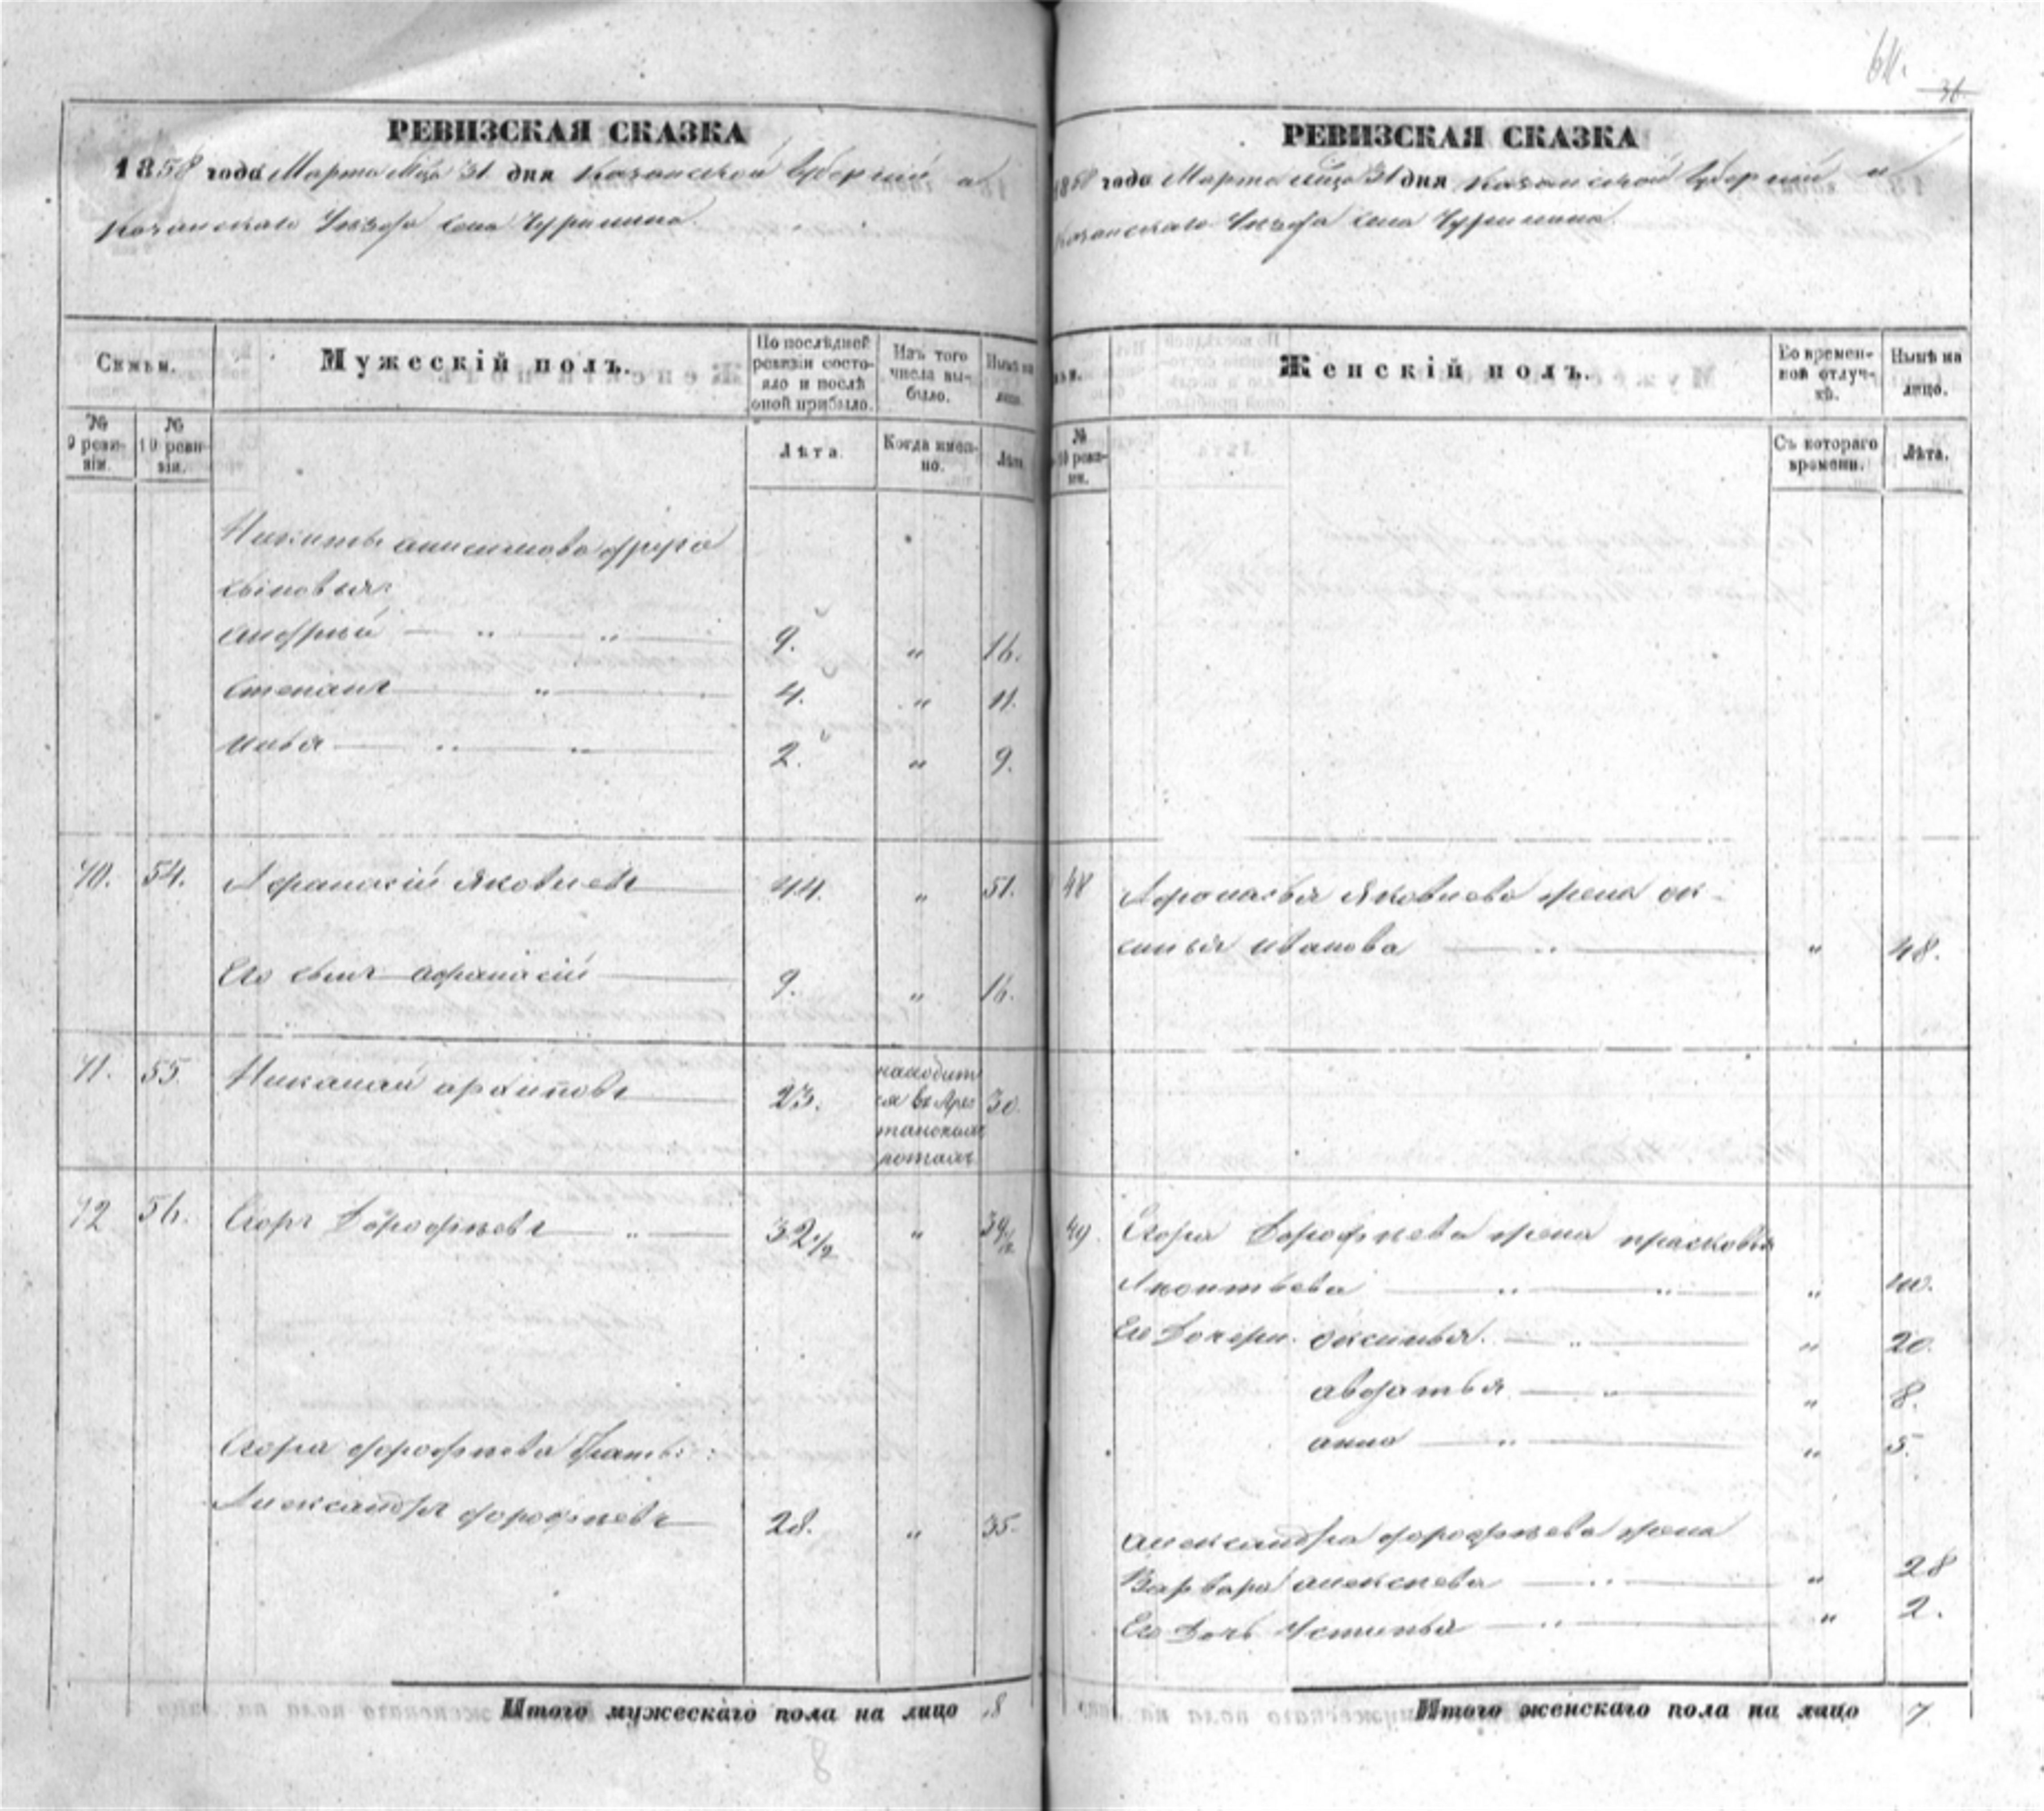 61.
36
РЕВИЗСКАЯ СКАЗКА
1858 года Марта М҃ца 31 дня Казанской Губерніи и
Казанскаго Уѣзда села Чурилина.
Семьи.
Мужескій полъ.
По послѣдней ревизіи состояло и послѣ оной прибыло.
Изъ того числа выбыло.
Нынѣ на лицо.
№ 9 ревизіи.
№ 10 ревизіи.
Лѣта.
Когда именно.
Лѣта.
Никиты анисимова
сыновья:
андрей — „ — „ — 9. „ 16.
степанъ — „ — 4. „ 11.
илья — „ — „ — 2. „ 9.
40. 54. Афанасій Яковлевъ 44. „ 51.
Его сынъ афанасій 9. „ 16.
41. 55. Николай архиповъ 23. находит
ся въ Арес
танскихъ
ротахъ 30.
42 56. Егоръ Дорофѣевъ — „ — 32 1/2 „ 39 1/2
Егора дорофѣева братъ:
Александръ дорофѣевъ 28. „ 35.
Итого мужескаго пола на лицо 8
8
РЕВИЗСКАЯ СКАЗКА
1858 года Марта М҃ца 31 дня Казанской Губерніи и
Казанскаго Уѣзда села Чурилина.
Женскій полъ.
Во временной отлучкѣ.
Нынѣ на лицо.
№ 10 ревизіи.
Съ котораго времени.
Лѣта.
Афанасья Яковлева жена ок-
синья иванова — „ — „ 48.
49. Егора Дорофѣева жена прасковья
Леонтьева — „ — „ — „ 40.
Его Дочери. оксинья. — „ — „ 20.
авдотья — „ — „ 8.
анна — „ — „ 5.
александра дорофѣева жена
Варвара алексѣева — „ — „ 28
Его Дочь Устинья — „ — „ 2.
Итого женскаго пола на лицо 7